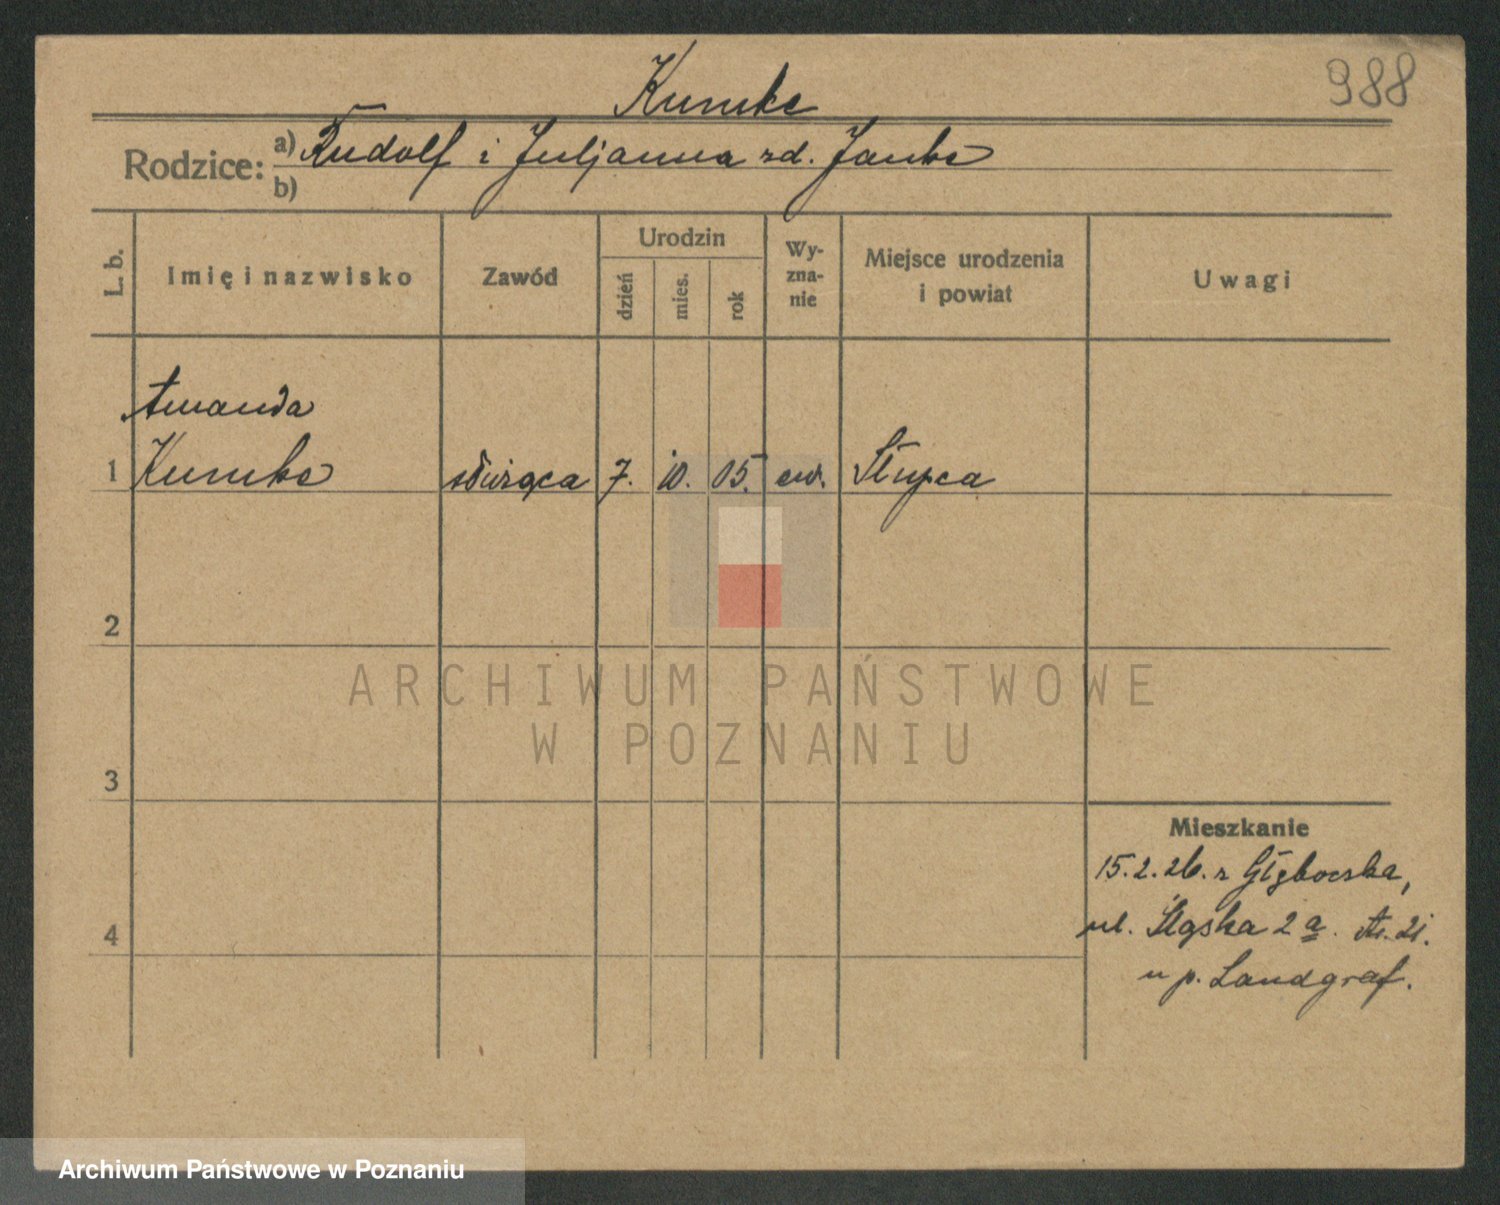 988
Kumke
Rodzice: a) Rudolf i Juljanna zd. Janke
b)
L. b. Imię i nazwisko Zawód Urodzin dzień mies. rok Wyznanie Miejsce urodzenia i powiat Uwagi
Amanda
1 Kumke służąca 7. 10. 05. ew. Słupca
2
ARCHIWUM PAŃSTWOWE
W POZNANIU
3
Mieszkanie
15.2.26. z Głębocska,
ul. Śląska 2 a.
4
u p. Landgraf.
Archiwum Państwowe w Poznaniu